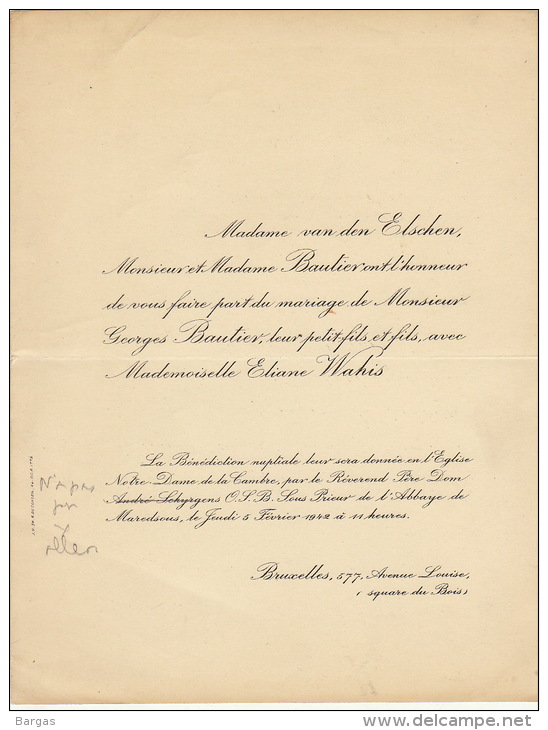 Madame van den Elschen,
Monsieur et Madame Bautier ont l'honneur
de vous faire part du mariage de Monsieur
Georges Bautier, leur petit-fils et fils, avec
Mademoiselle Eliane Wahis
La Bénédiction nuptiale leur sera donnée en l'Eglise
Notre-Dame de la Cambre, par le Révérend Père Dom
André Schyrgens O.S.B. Sous Prieur de l'Abbaye de
Maredsous, le Jeudi 5 Février 1942 à 11 heures.
Bruxelles, 577, Avenue Louise,
(square du Bois)
N'a pas
pu
y
aller
Bargas
www.delcampe.net